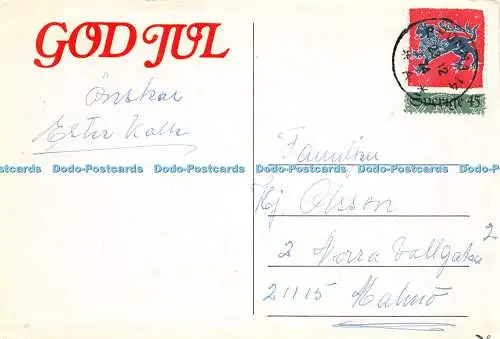 GOD JUL
Önskar
Ester Kalle
Sverige 45
Familjen
Hj Olsson
2 Norra Vallgatan
2
21115 Malmö
Dodo-Postcards Dodo-Postcards Dodo-Postcards Dodo-Postcards Dodo-Postcards